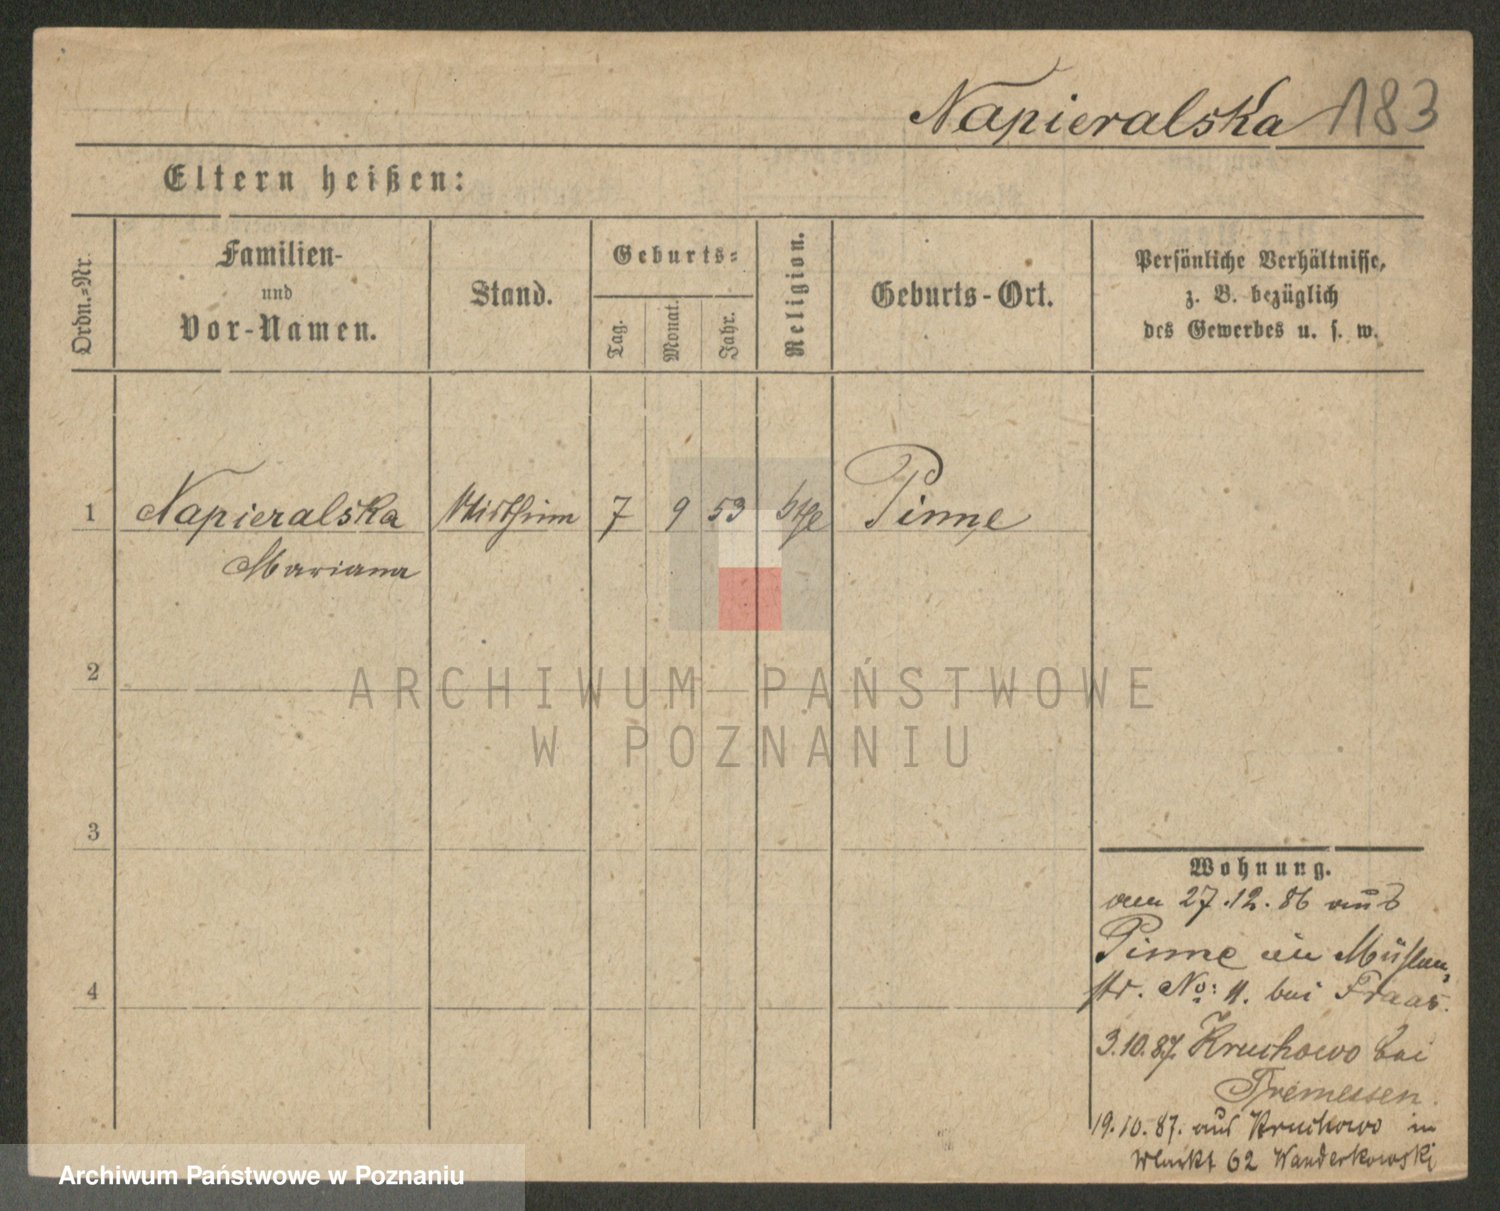 Napieralska 183
Eltern heißen:
Ordn.-Nr.
Familien-
und
Vor-Namen.
Stand.
Geburts-
Tag.
Monat.
Jahr.
Religion.
Geburts-Ort.
Persönliche Verhältnisse,
z. B. bezüglich
des Gewerbes u. s. w.
1 Napieralska Wirthinn 7 9 53 Pinne
Mariana
2
ARCHIWUM PAŃSTWOWE
W POZNANIU
3
Wohnung.
am 27.12.86 aus
Pinne in Mühlen-
str. No: 4. bei Fraas.
4
3.10.87. Kruchowo bei
Tremessen.
19.10.87. aus Kruchowo in
62 Wanderkowski
Archiwum Państwowe w Poznaniu